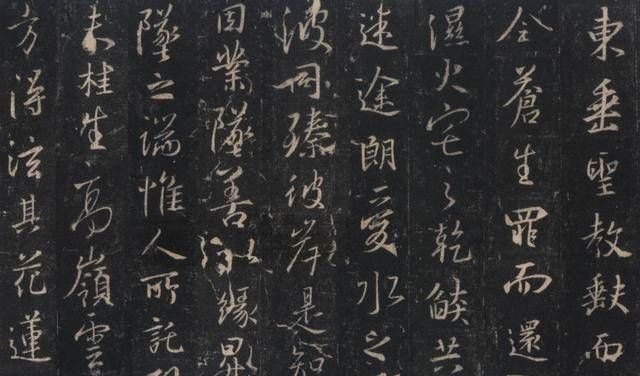 東垂聖教缺而
全蒼生罪而還
濕火宅之乾燄共
迷途朗愛水之
波同臻彼岸是知
因業墜善以緣昇
墜之端惟人所託
夫桂生高嶺雲
方得泫其花蓮